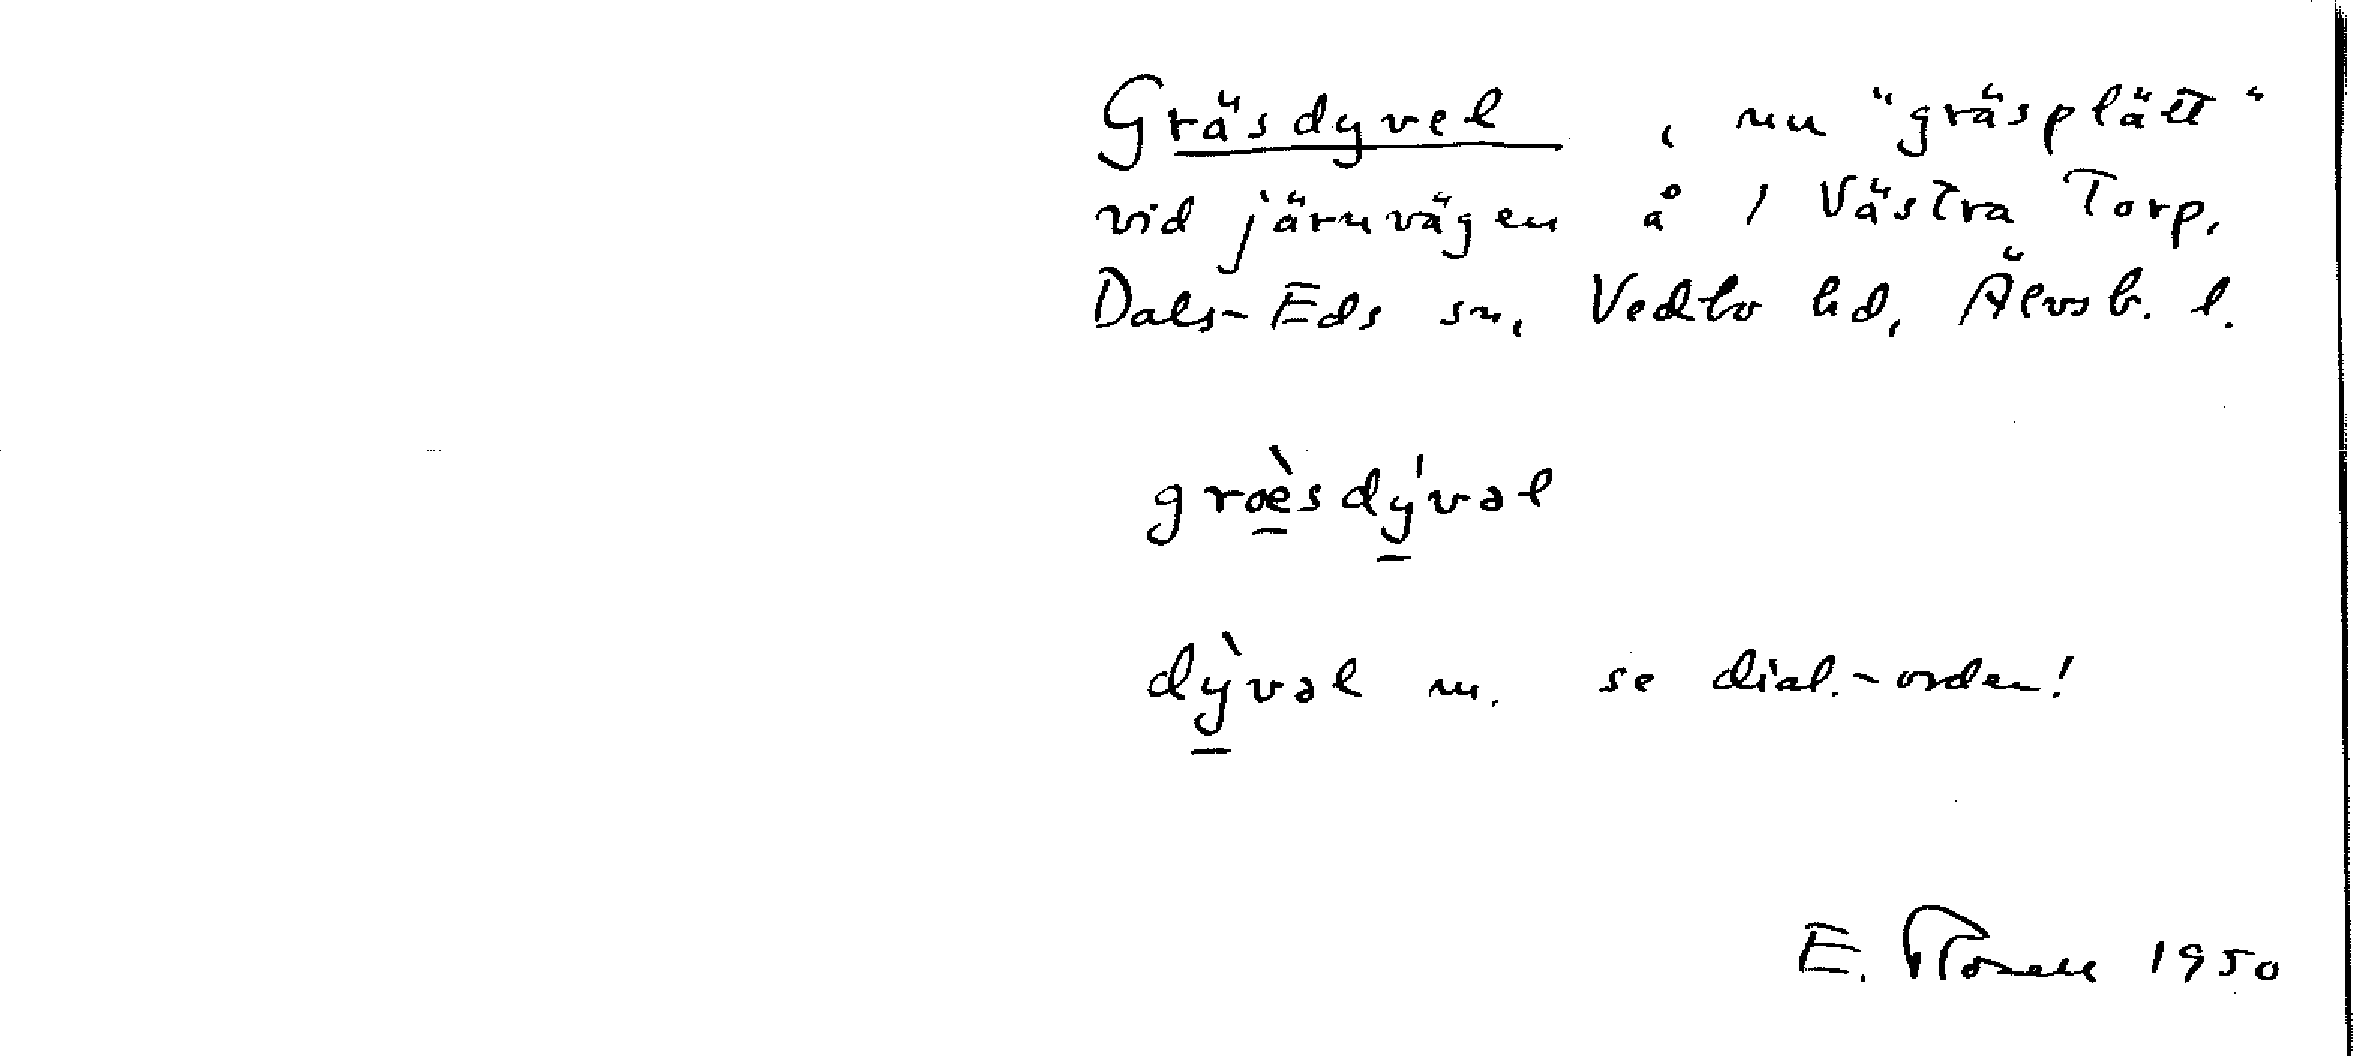 Gräsdyvel, nu "gräsplätt"
vid järnvägen å 1 Västra Torp,
Dals-Eds sn, Vedbo hd, Älvsb. l.
græ̀sdývəl
dỳvəl m. se dial.-orden!
E. 1950